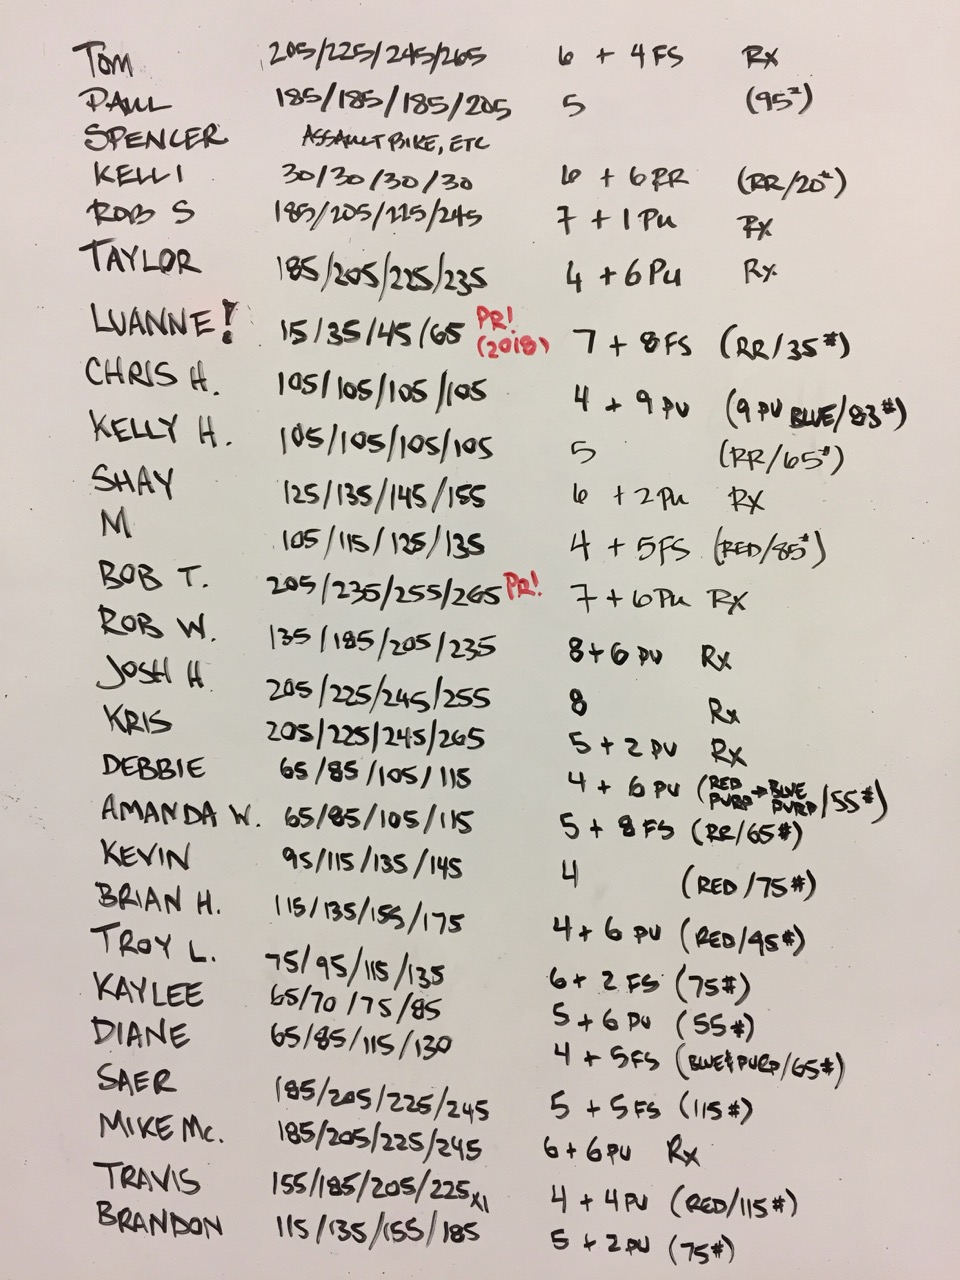 Tom 205/225/245/265 6 + 4 FS Rx
PAUL 185/185/185/205 5 (95#)
SPENCER ASSAULT BIKE, ETC
KELLI 30/30/30/30 6 + 6 RR (RR/20#)
ROB S 185/205/225/245 7 + 1 Pu Rx
TAYLOR 185/205/225/235 4 + 6 Pu Rx
LUANNE! 15/35/45/65 PR! (2018) 7 + 8 FS (RR/35#)
CHRIS H. 105/105/105/105 4 + 9 PU (9 PU BLUE/83#)
KELLY H. 105/105/105/105 5 (RR/65#)
SHAY 125/135/145/155 6 + 2 Pu RX
M 105/115/125/135 4 + 5 FS (RED/85#)
BOB T. 205/235/255/265 PR! 7 + 6 Pu RX
ROB W. 135/185/205/235 8 + 6 PU Rx
JOSH H 205/225/245/255 8 Rx
KRIS 205/225/245/265 5 + 2 PU Rx
DEBBIE 65/85/105/115 4 + 6 PU (RED PURP → BLUE PURP/55#)
AMANDA W. 65/85/105/115 5 + 8 FS (RR/65#)
KEVIN 95/115/135/145 4 (RED/75#)
BRIAN H. 115/135/155/175 4 + 6 PU (RED/95#)
TROY L. 75/95/115/135 6 + 2 FS (75#)
KAYLEE 65/70/75/85 5 + 6 PU (55#)
DIANE 65/85/115/130 4 + 5 FS (BLUE & PURP/65#)
SAER 185/205/225/245 5 + 5 FS (115#)
MIKE Mc. 185/205/225/245 6 + 6 PU Rx
TRAVIS 155/185/205/225 X1 4 + 4 PU (RED/115#)
BRANDON 115/135/155/185 5 + 2 PU (75#)